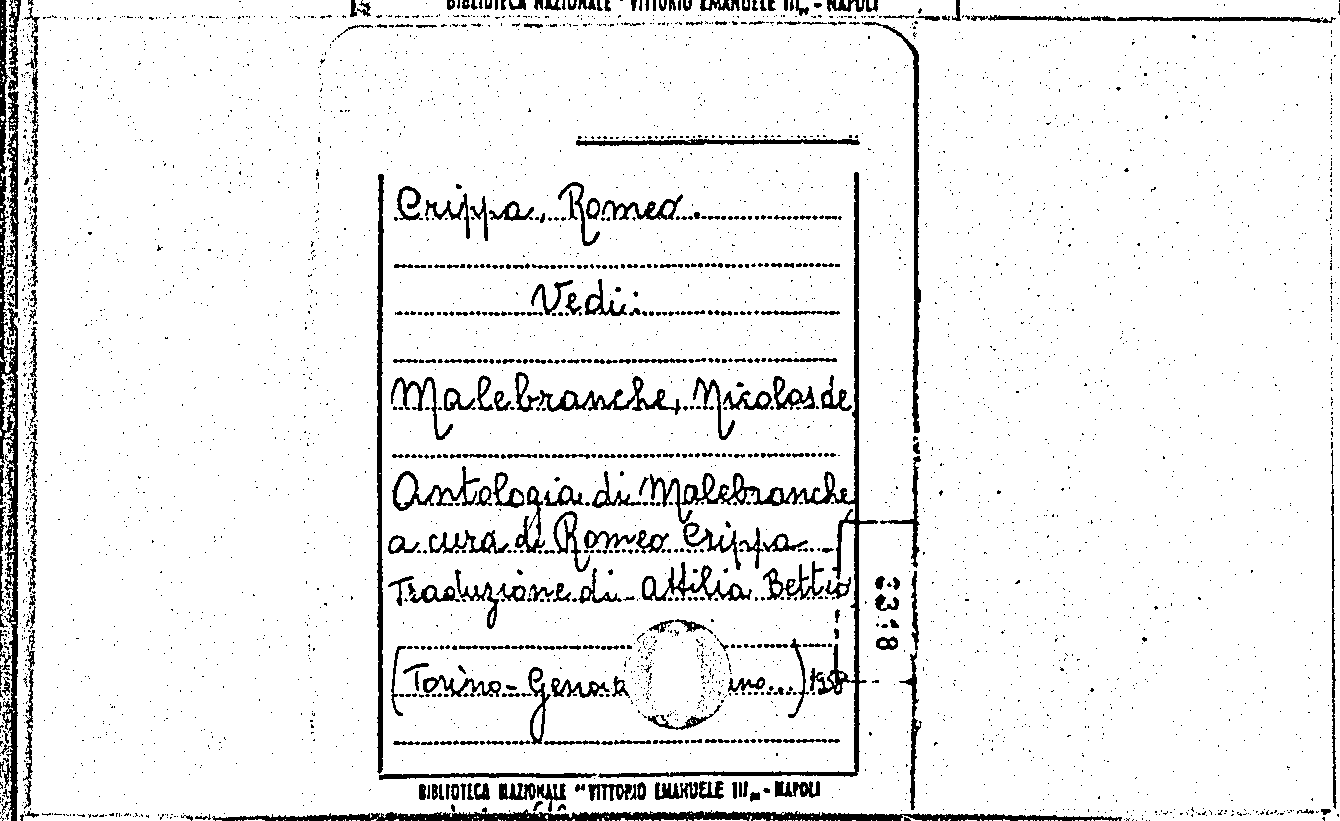 BIBLIOTECA NAZIONALE "VITTORIO EMANUELE III„ - NAPOLI
Crippa, Romeo.
Vedi:
Malebranche, Nicolas de
Antologia di Malebranche
a cura di Romeo Crippa
Traduzione di Attilia Bettio
(Torino-Genova ano...) 1958
3318
BIBLIOTECA NAZIONALE "VITTORIO EMANUELE III„ - NAPOLI